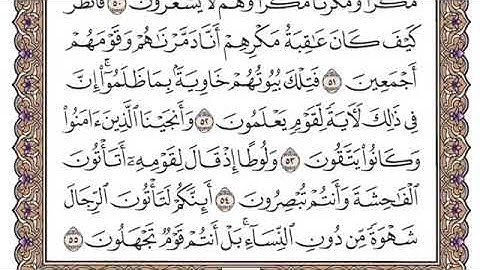 مَكْرًا وَمَكَرْنَا مَكْرًا وَهُمْ لَا يَشْعُرُونَ ٥٠ فَانظُرْ
كَيْفَ كَانَ عَٰقِبَةُ مَكْرِهِمْ أَنَّا دَمَّرْنَٰهُمْ وَقَوْمَهُمْ
أَجْمَعِينَ ٥١ فَتِلْكَ بُيُوتُهُمْ خَاوِيَةًۢ بِمَا ظَلَمُوٓا۟ ۗ إِنَّ
فِى ذَٰلِكَ لَءَايَةً لِّقَوْمٍ يَعْلَمُونَ ٥٢ وَأَنجَيْنَا ٱلَّذِينَ ءَامَنُوا۟
وَكَانُوا۟ يَتَّقُونَ ٥٣ وَلُوطًا إِذْ قَالَ لِقَوْمِهِۦٓ أَتَأْتُونَ
ٱلْفَٰحِشَةَ وَأَنتُمْ تُبْصِرُونَ ٥٤ أَئِنَّكُمْ لَتَأْتُونَ ٱلرِّجَالَ
شَهْوَةً مِّن دُونِ ٱلنِّسَآءِ ۚ بَلْ أَنتُمْ قَوْمٌ تَجْهَلُونَ ٥٥